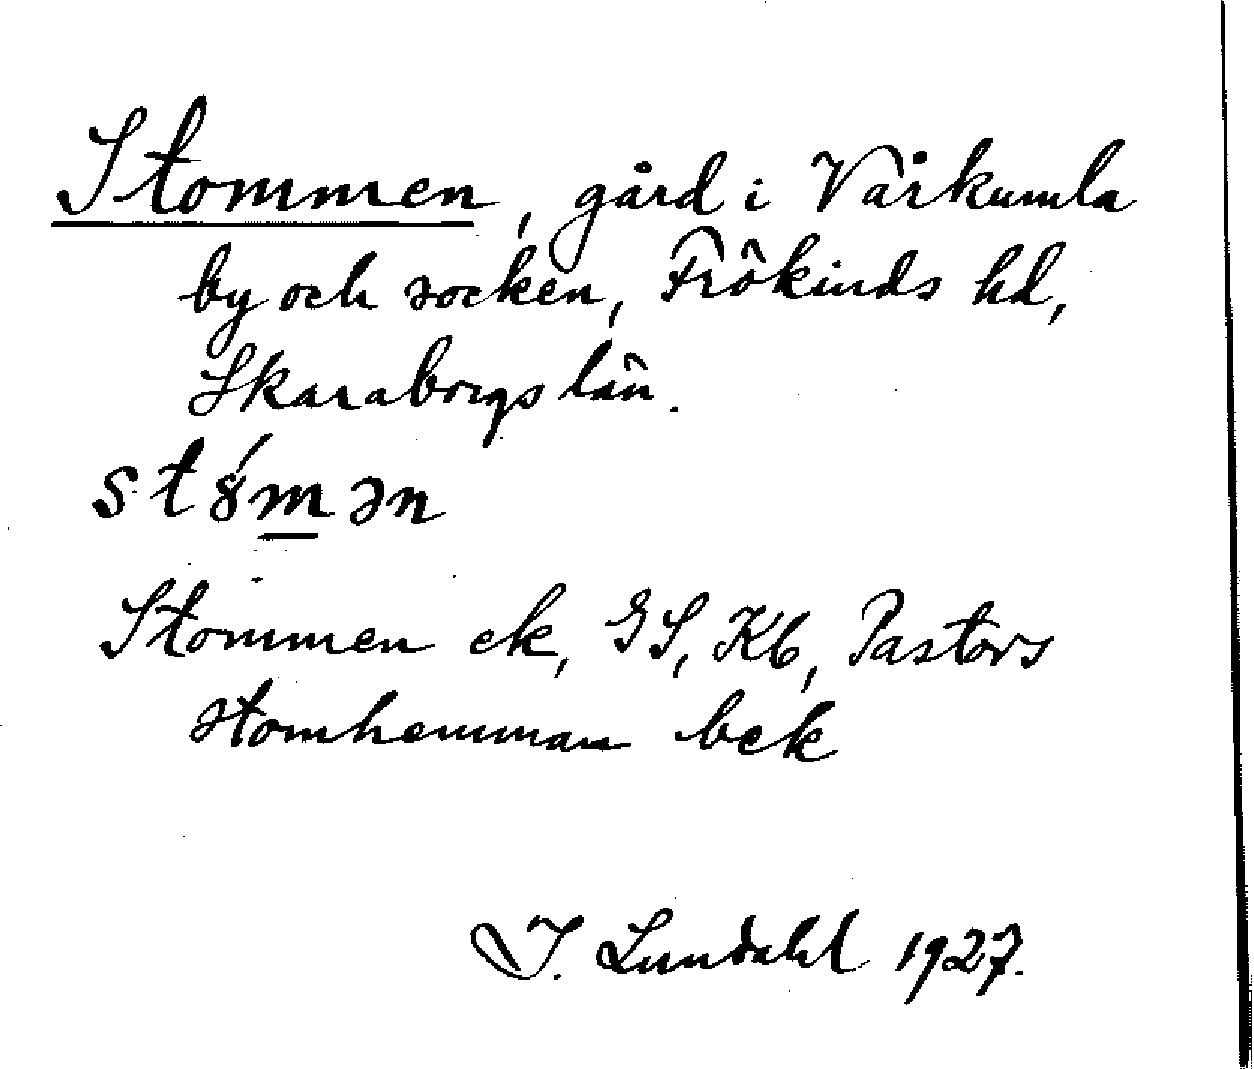 Stommen, gård i Vårkumla
by och socken, Frökinds hd,
Skaraborgs län.
st8́mən
Stommen ek, GS, Kb, Pastors
stomhemman bek
I. Lundahl 1927.